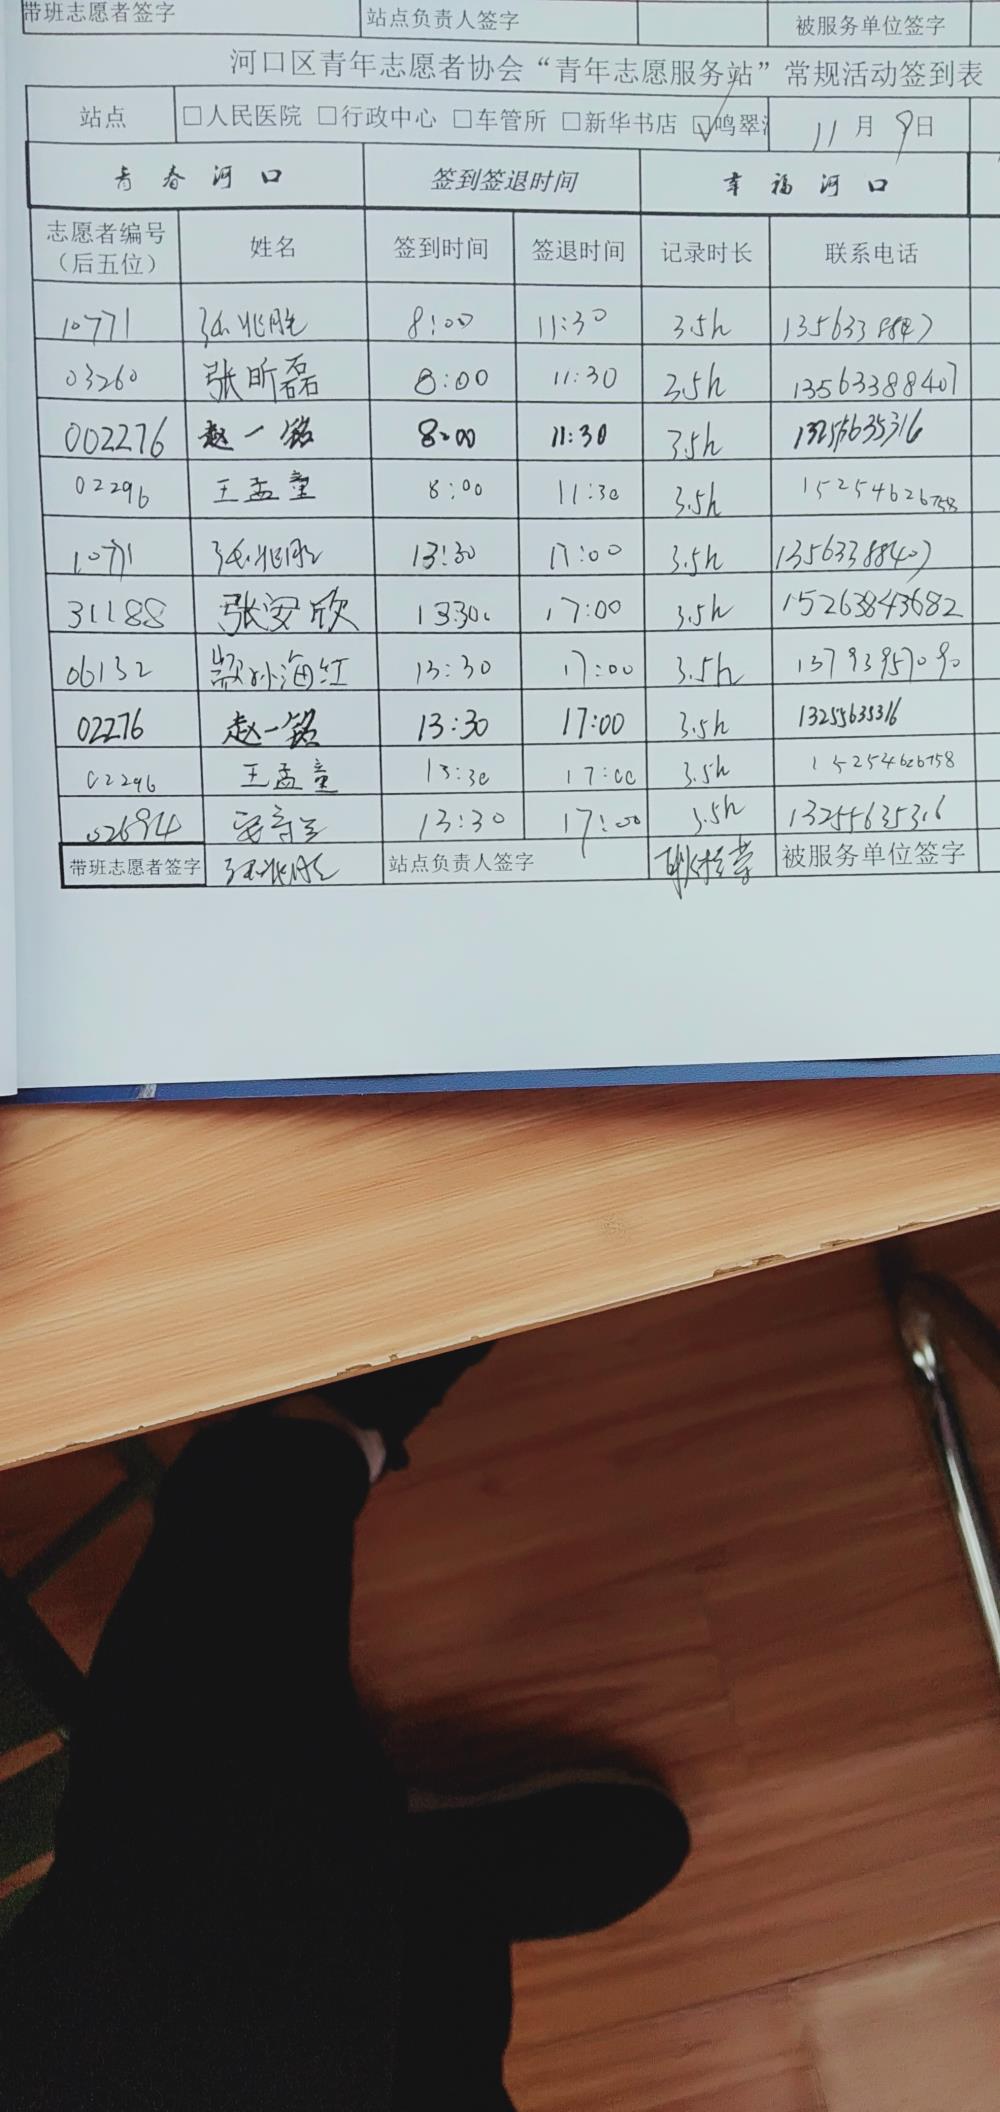 带班志愿者签字 站点负责人签字 被服务单位签字
河口区青年志愿者协会“青年志愿服务站”常规活动签到表
站点 □人民医院 □行政中心 □车管所 □新华书店 ☑鸣翠 11月9日
青春河口 签到签退时间 幸福河口
志愿者编号（后五位） 姓名 签到时间 签退时间 记录时长 联系电话
10771 张兆胜 8:00 11:30 3.5h
03260 张昕磊 8:00 11:30 3.5h 13563388407
002276 赵一铭 8:00 11:30 3.5h 13255635316
02296 王孟童 8:00 11:30 3.5h 15254626758
10771 张兆胜 13:30 17:00 3.5h 13563388407
31188 张安欣 13:30 17:00 3.5h 15263843682
06132 海红 13:30 17:00 3.5h 13793957090
02276 赵一铭 13:30 17:00 3.5h 13255635316
02296 王孟童 13:30 17:00 3.5h 15254626758
02694 13:30 17:00 3.5h 13255635316
带班志愿者签字 张兆胜 站点负责人签字 被服务单位签字